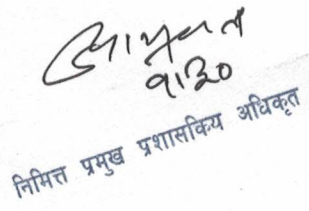 ९।३०
निमित्त प्रमुख प्रशासकिय अधिकृत